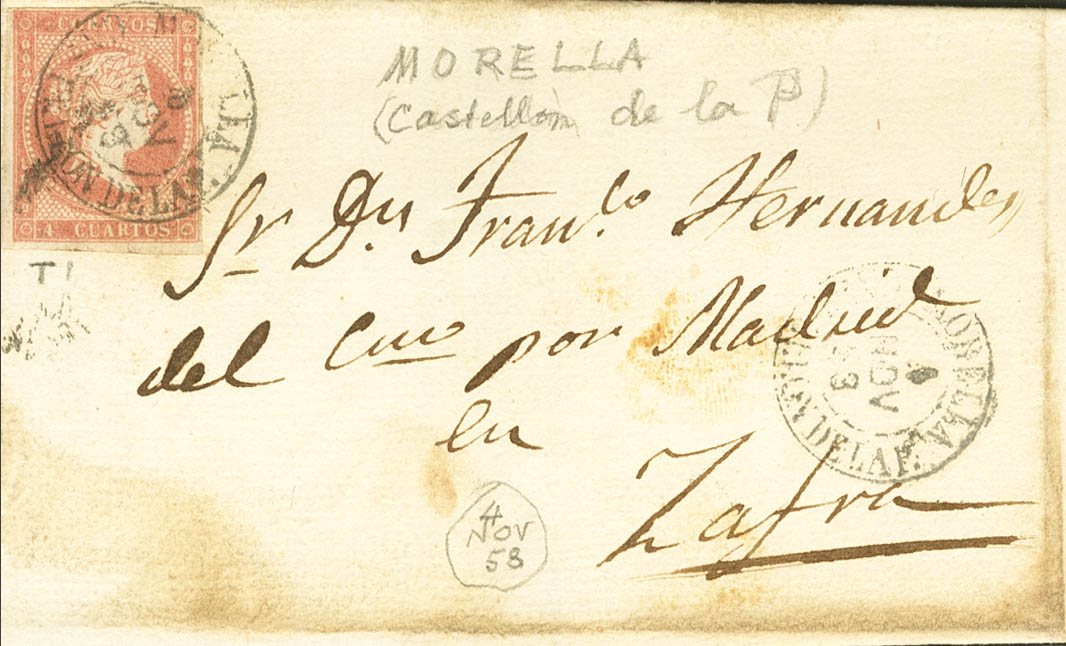 CORREOS
4 CUARTOS
MORELLA
(Castellón de la P)
Sr Dn Franco Hernandez
del Cmo por Madrid
en
Zafra
T I
4
NOV
58
MORELLA
4
NOV
CASTELLON DE LA P.